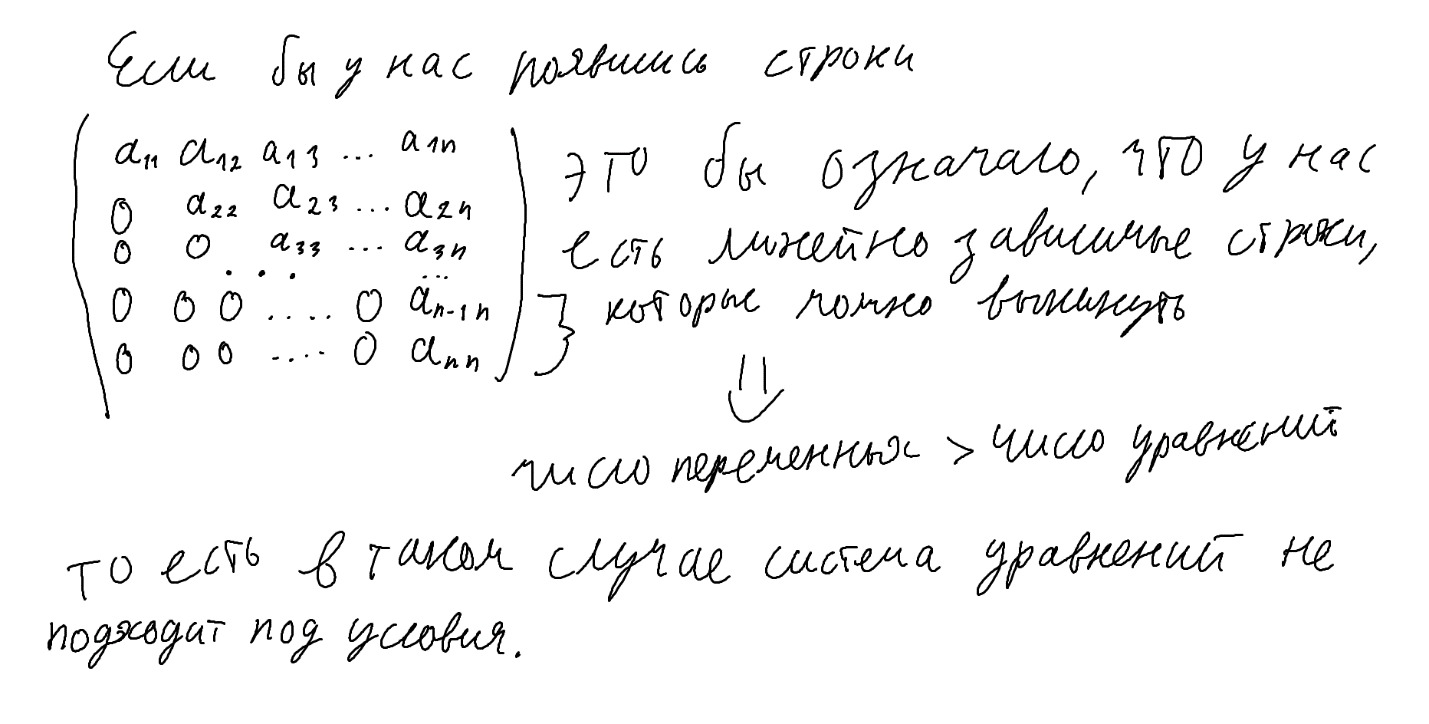 Если бы у нас появились строки
a₁₁ a₁₂ a₁₃ ... a₁ₙ
0 a₂₂ a₂₃ ... a₂ₙ
0 0 a₃₃ ... a₃ₙ
. . . ...
0 0 0 .... 0 aₙ₋₁ₙ
0 0 0 .... 0 aₙₙ
это бы означало, что у нас
есть линейно зависимые строки,
которые можно выкинуть
⇓
число переменных > число уравнений
то есть в таком случае система уравнений не
подходит под условия.